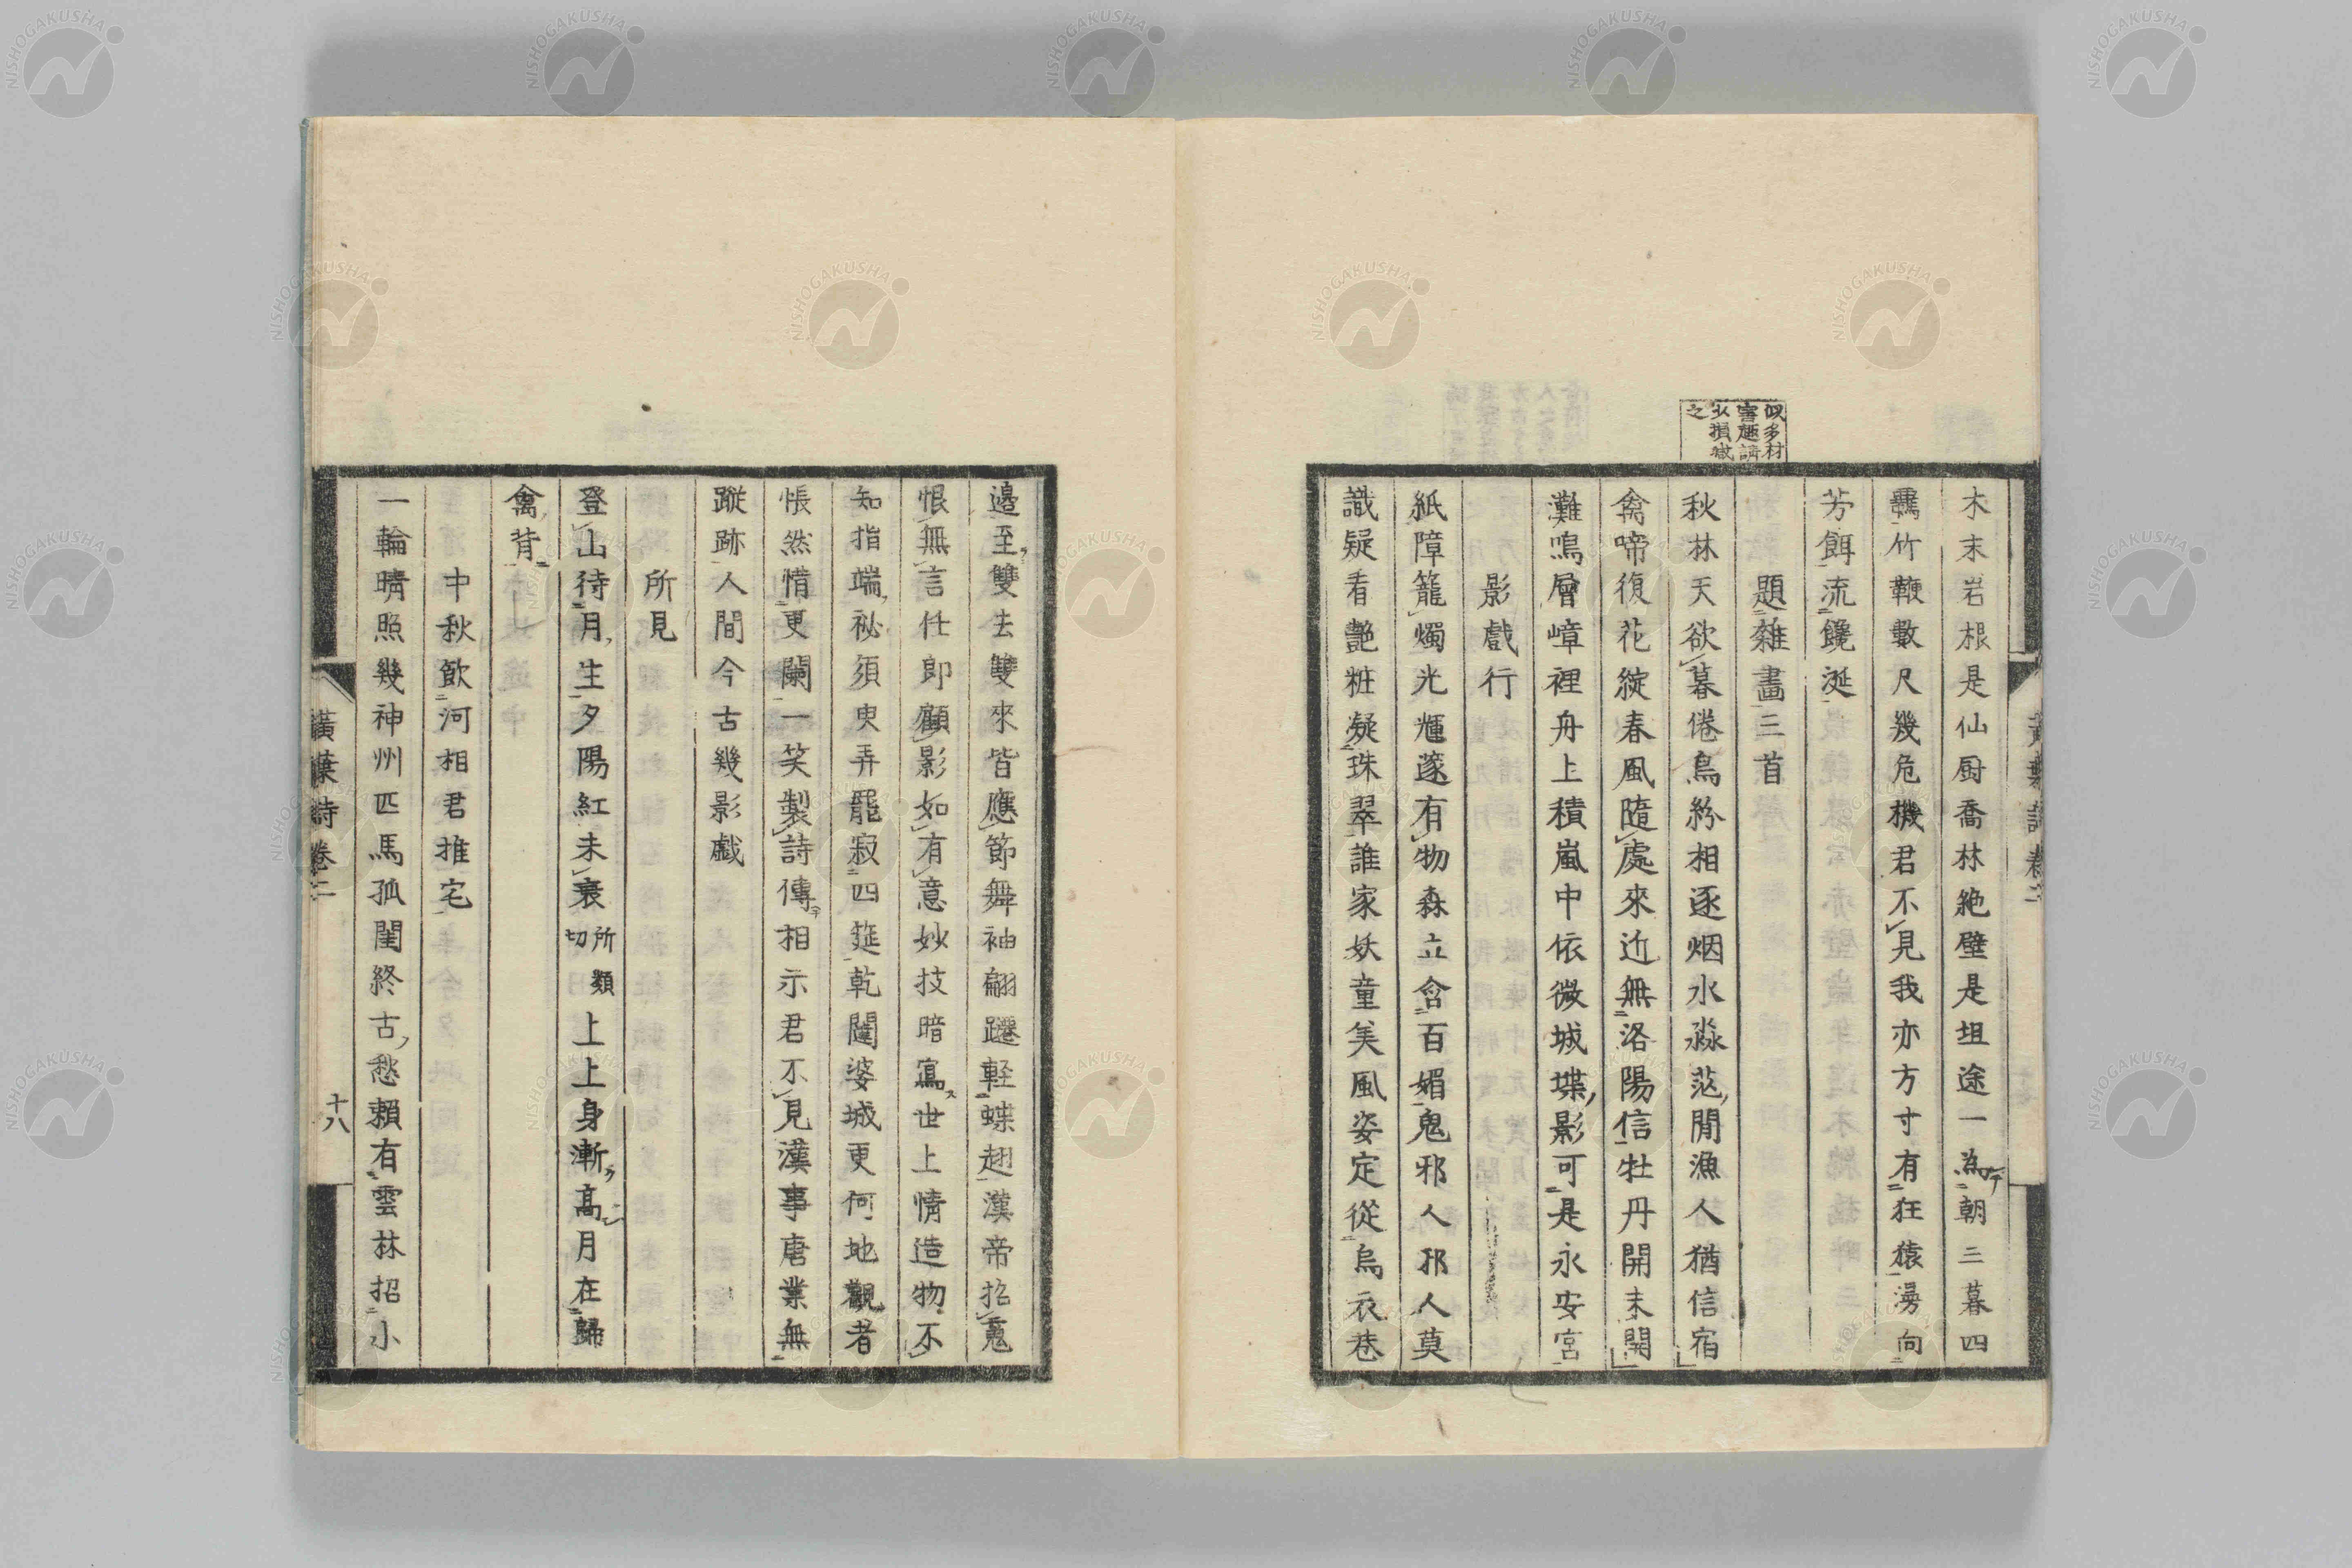 似多材
害趣請
少損裁
之
木末岩根是仙厨喬林絶壁是坦途一為朝三暮四
竹鞭數尺幾危機君不見我亦方寸有狂猿漫向
芳餌流饞涎
題雜畵三首
秋林天欲暮倦鳥紛相逐烟水淼茫閒漁人猶信宿
禽啼復花綻春風隨處來近無洛陽信牡丹開未開
灘鳴層嶂裡舟上積嵐中依微城堞影可是永安宮
影戲行
紙障籠燭光輝邃有物森立含百媚鬼邪人邪人莫
識疑看艶粧凝珠翠誰家妖童美風姿定從烏衣巷
黄葉詩卷二
邉至雙去雙來皆應節舞袖翩躚軽蝶趐漢帝招䰟
恨無言任郎顧影如有意妙技暗寫世上情造物不
知指端祕須臾弄罷寂四筵乾闥婆城更何地觀者
悵然惜更闌一笑製詩傳相示君不見漢事唐業無
蹤跡人間今古幾影戯
所見
登山待月生夕陽紅未衰所類切上上身漸髙月在歸
禽背
中秋飲河相君推宅
一輪晴照幾神州匹馬孤閨終古愁頼有雲林招小
黄葉詩卷二
十八
NISHOGAKUSHA